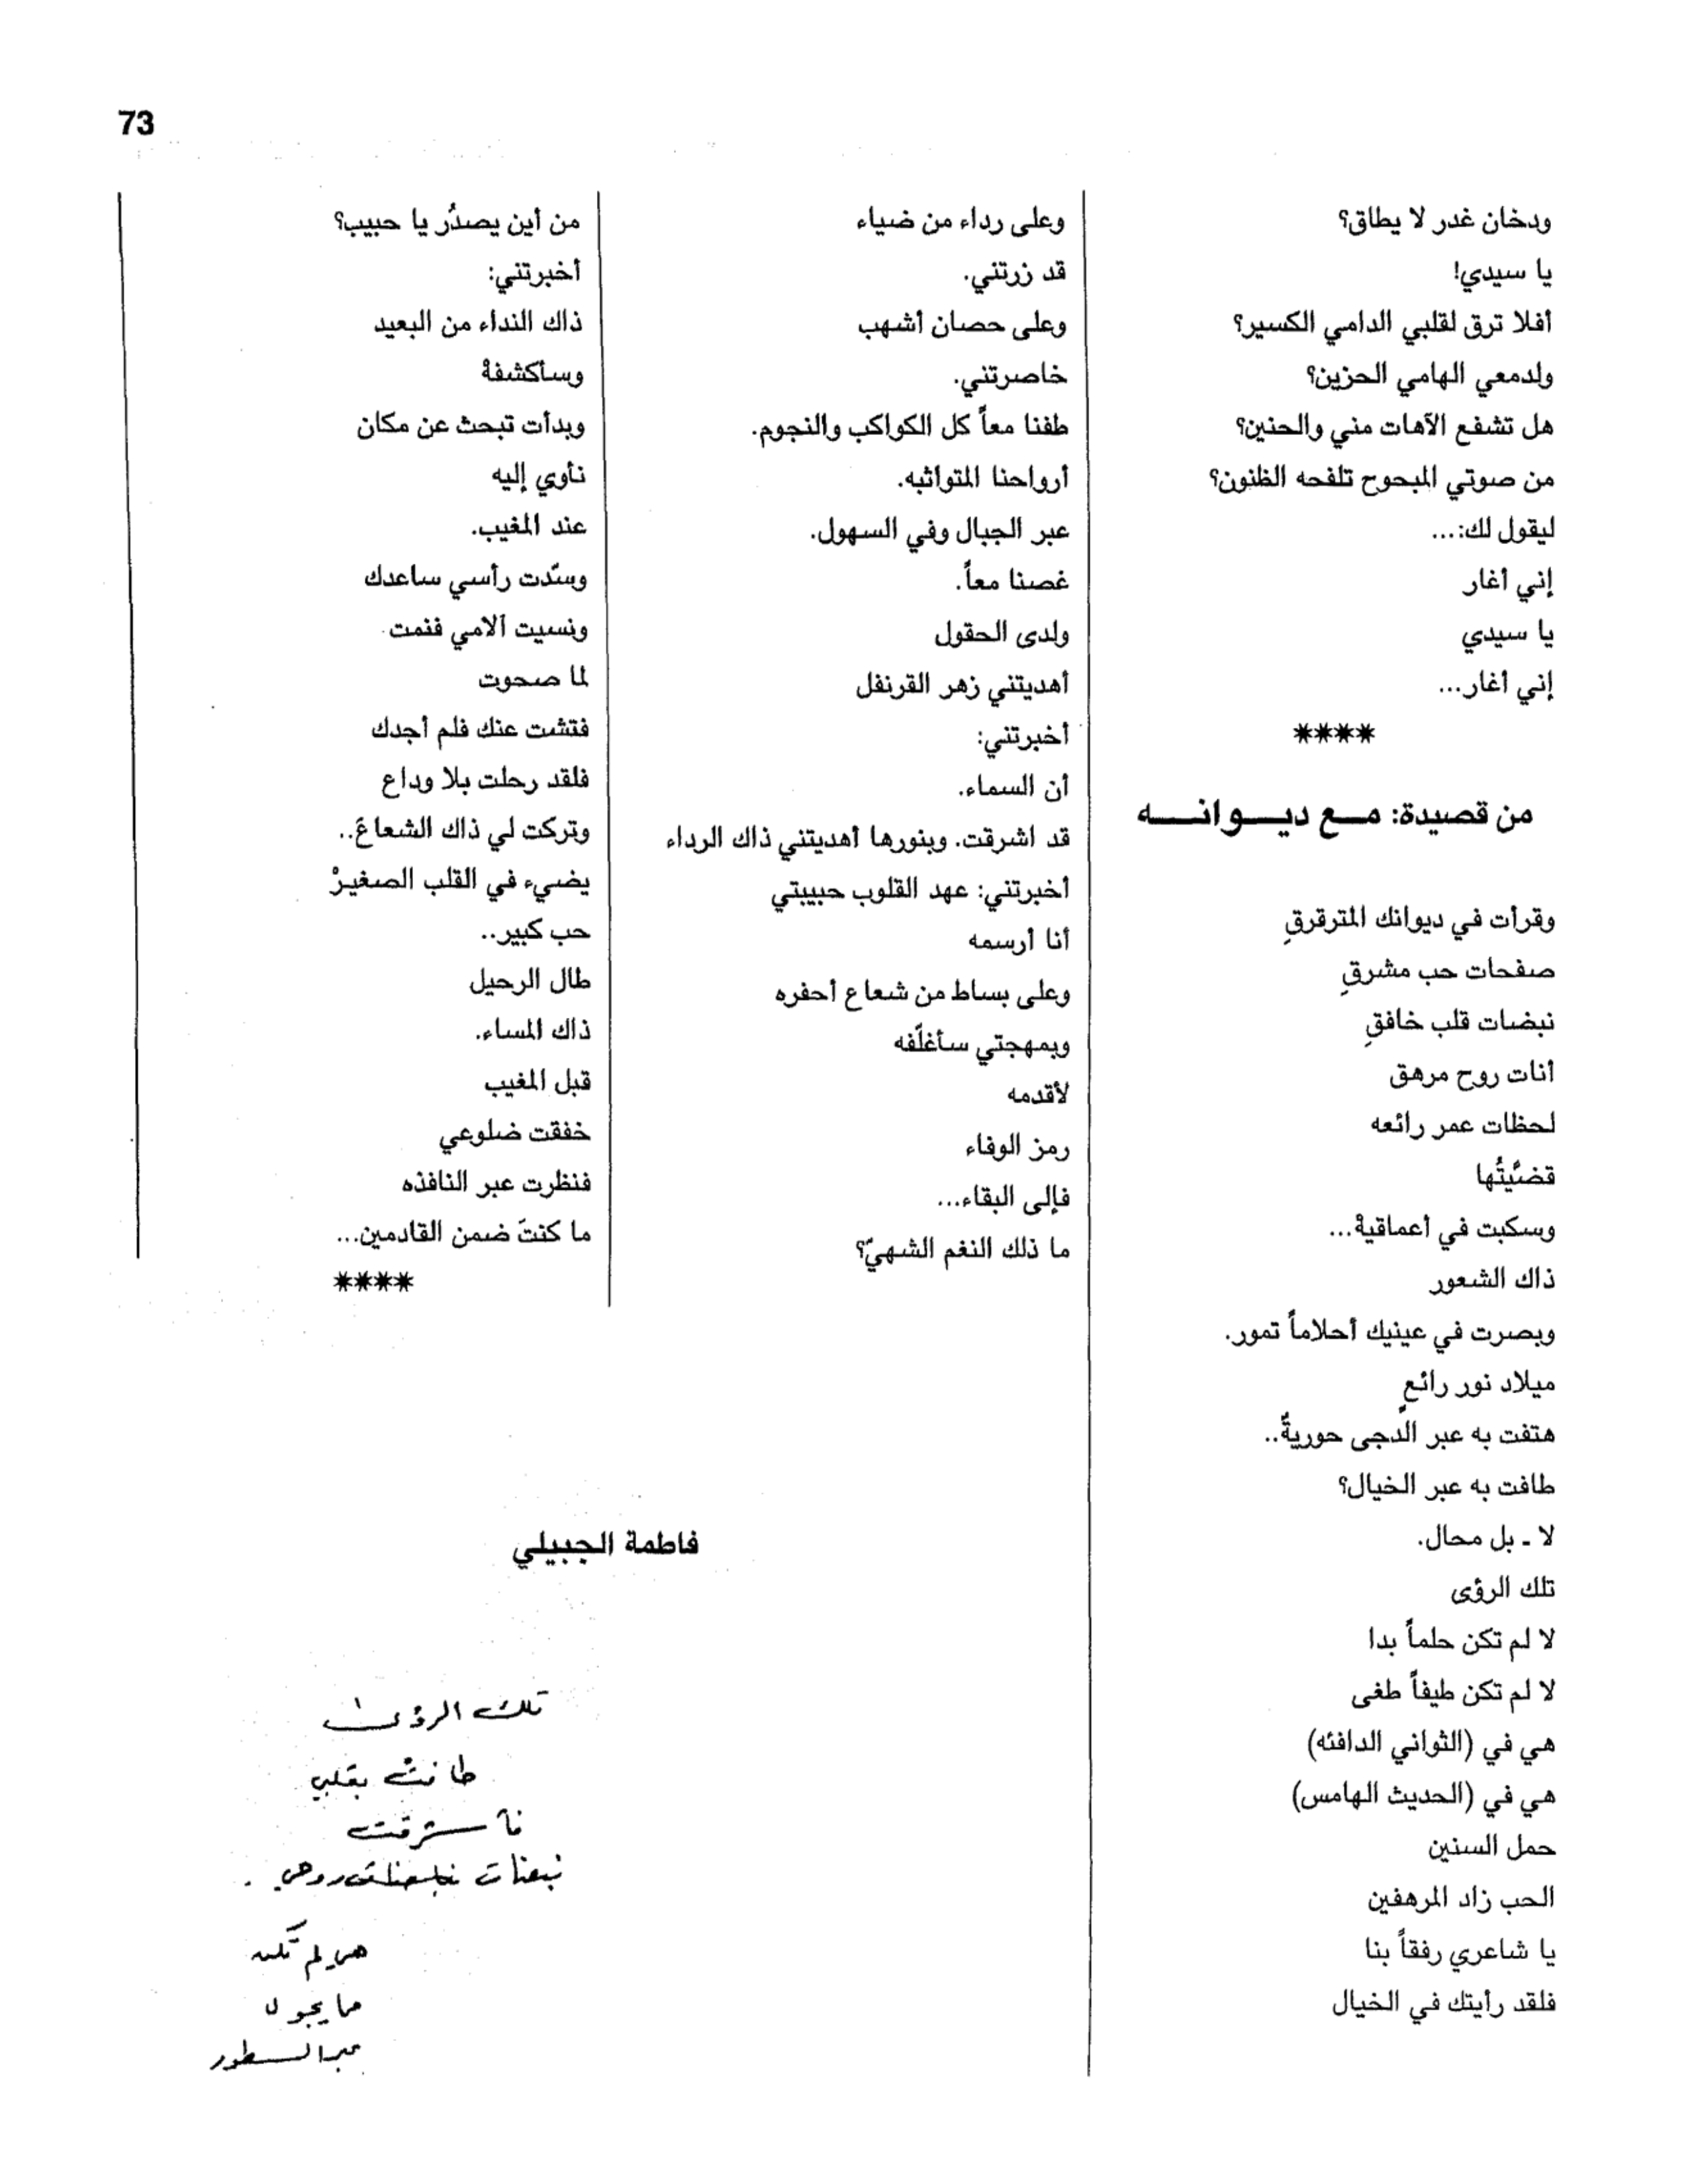 73
ودخان غدر لا يطاق؟
يا سيدي!
أفلا ترق لقلبي الدامي الكسير؟
ولدمعي الهامي الحزين؟
هل تشفع الآهات مني والحنين؟
من صوتي المبحوح تلفحه الظنون؟
ليقول لك:...
إني أغار
يا سيدي
إني أغار...
****
من قصيدة: مــع ديـــوانـــه
وقرأت في ديوانك المترقرقِ
صفحات حب مشرقِ
نبضات قلب خافقِ
أنات روح مرهق
لحظات عمر رائعه
قضيَّتُها
وسكبت في أعماقيهْ...
ذاك الشعور
وبصرت في عينيك أحلاماً تمور.
ميلاد نور رائعٍ
هتفت به عبر الدَّجى حوريةٌ..
طافت به عبر الخيال؟
لا ـ بل محال.
تلك الرؤى
لا لم تكن حلماً بدا
لا لم تكن طيفاً طغى
هي في (الثواني الدافئه)
هي في (الحديث الهامس)
حمل السنين
الحب زاد المرهفين
يا شاعري رفقاً بنا
فلقد رأيتك في الخيال
وعلى رداء من ضياء
قد زرتني.
وعلى حصان أشهب
خاصرتني.
طفنا معاً كل الكواكب والنجوم.
أرواحنا المتواثبه.
عبر الجبال وفي السهول.
غصنا معاً.
ولدى الحقول
أهديتني زهر القرنفل
أخبرتني:
أن السماء.
قد اشرقت. وبنورها أهديتني ذاك الرداء
أخبرتني: عهد القلوب حبيبتي
أنا أرسمه
وعلى بساط من شعاع أحفره
وبمهجتي سأغلّفه
لأقدمه
رمز الوفاء
فإلى البقاء...
ما ذلك النغم الشهيّ؟
من أين يصدُر يا حبيب؟
أخبرتني:
ذاك النداء من البعيد
وسأكشفهْ
وبدأت تبحث عن مكان
نأوي إليه
عند المغيب.
وسّدت رأسي ساعدك
ونسيت آلامي فنمت
لما صحوت
فتشت عنك فلم أجدك
فلقد رحلت بلا وداع
وتركت لي ذاك الشعاعَ..
يضيء في القلب الصغيرْ
حب كبير..
طال الرحيل
ذاك المساء.
قبل المغيب
خفقت ضلوعي
فنظرت عبر النافذه
ما كنتَ ضمن القادمين...
****
فاطمة الجبيلي
تلك الرؤى
طافت بقلبي
فأشرقت
نبضات روحي.
هي لم تكن
ما يجول
عبر السطور